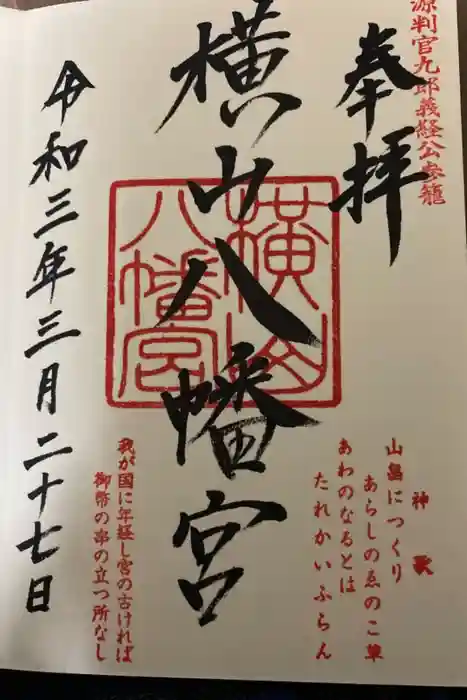 源判官九郎義経公参籠
奉拝
横山八幡宮
横山
八幡宮
令和三年三月二十七日
神歌
山畠につくり
あらしのゑのこ草
あわのなるとは
たれかいふらん
我が国に年経し宮の古ければ
御幣の串の立つ所なし